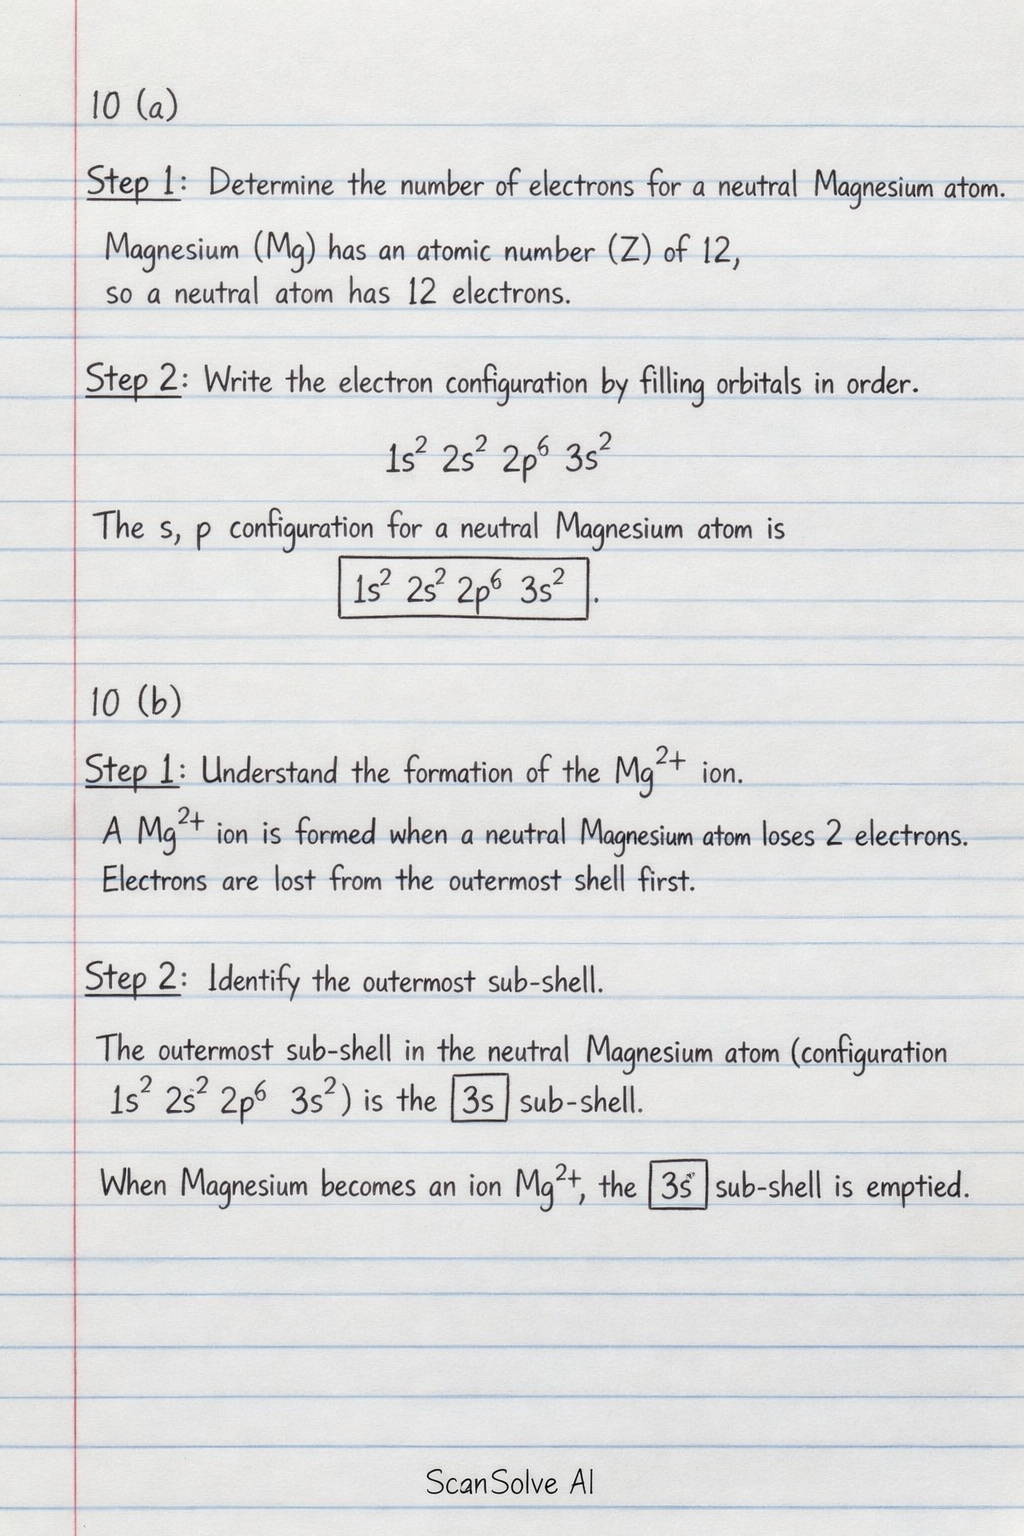 10 (a)
Step 1: Determine the number of electrons for a neutral Magnesium atom.
Magnesium (Mg) has an atomic number (Z) of 12,
so a neutral atom has 12 electrons.
Step 2: Write the electron configuration by filling orbitals in order.
1s² 2s² 2p⁶ 3s²
The s, p configuration for a neutral Magnesium atom is
1s² 2s² 2p⁶ 3s².
10 (b)
Step 1: Understand the formation of the Mg²⁺ ion.
A Mg²⁺ ion is formed when a neutral Magnesium atom loses 2 electrons.
Electrons are lost from the outermost shell first.
Step 2: Identify the outermost sub-shell.
The outermost sub-shell in the neutral Magnesium atom (configuration
1s² 2s² 2p⁶ 3s²) is the 3s sub-shell.
When Magnesium becomes an ion Mg²⁺, the 3s sub-shell is emptied.
ScanSolve AI